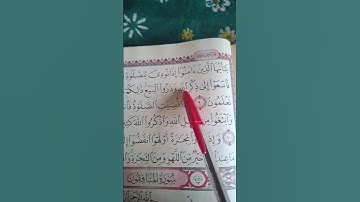 يَٰٓأَيُّهَا ٱلَّذِينَ ءَامَنُوٓا۟ إِذَا نُودِىَ لِلصَّلَوٰةِ
فَٱسْعَوْا۟ إِلَىٰ ذِكْرِ ٱللَّهِ وَذَرُوا۟ ٱلْبَيْعَ ذَٰلِكُمْ
تَعْلَمُونَ قُضِيَتِ ٱلصَّلَوٰةُ فَٱ
وَٱبْتَغُوا۟ مِن ٱللَّهِ وَٱذْكُرُوا۟ ٱللَّهَ
وَإِذَا رَأَوْا۟ تِجَٰرَةً أَوْ لَهْوًا ٱنفَضُّوٓا۟
مَا عِندَ خَيْرٌ مِّنَ ٱللَّهْوِ وَمِنَ ٱلتِّجَٰرَةِ وَٱ
سُورَةُ المُنَافِقُونَ